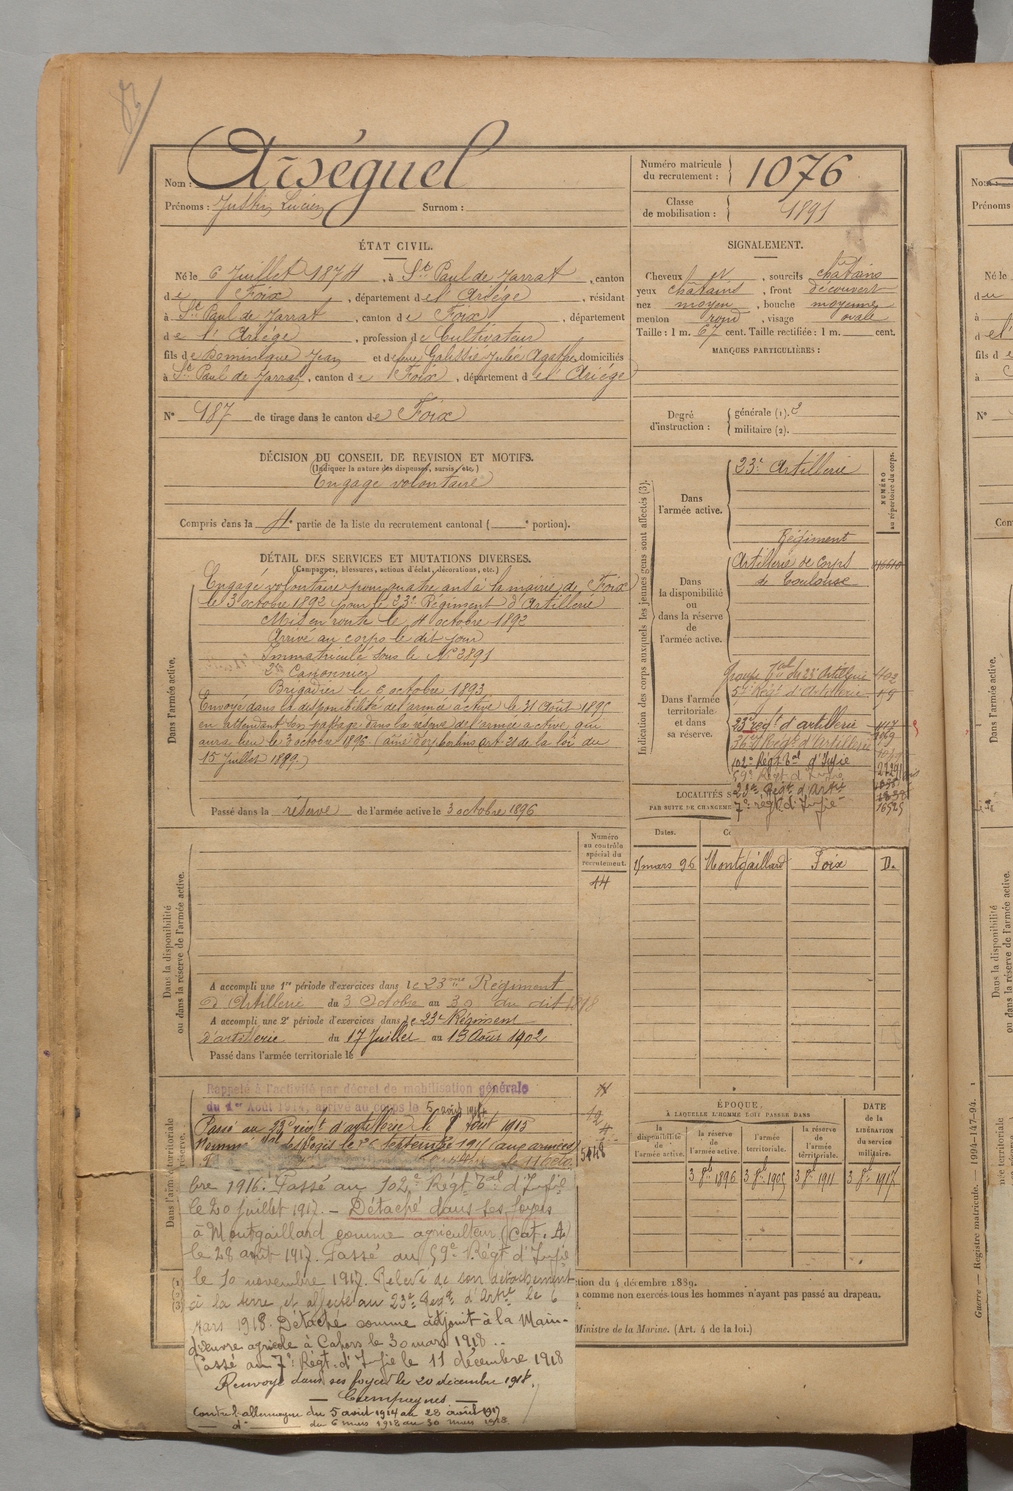 Nom : Arséguel
Prénoms : Justin Lucien Surnom :
Numéro matricule du recrutement : 1076
Classe de mobilisation : 1891
ÉTAT CIVIL.
Né le 6 Juillet 1874, à St Paul de Jarrat, canton
de Foix, département de l'Ariège, résidant
à St Paul de Jarrat, canton de Foix, département
de l'Ariège, profession de Cultivateur
fils de Dominique Jean et de feue Galissié Julie Agathe, domiciliés
à St Paul de Jarrat, canton de Foix, département de l'Ariège
N° 187 de tirage dans le canton de Foix
SIGNALEMENT.
Cheveux et, sourcils chatains
yeux chatains, front découvert
nez moyen, bouche moyenne
menton rond, visage ovale
Taille : 1 m. 67 cent. Taille rectifiée : 1 m. cent.
MARQUES PARTICULIÈRES :
Degré d'instruction : générale (1). 3
militaire (2).
DÉCISION DU CONSEIL DE REVISION ET MOTIFS.
(Indiquer la nature des dispenses, sursis, etc.)
Engagé volontaire
Compris dans la 4e partie de la liste du recrutement cantonal ( e portion).
DÉTAIL DES SERVICES ET MUTATIONS DIVERSES.
(Campagnes, blessures, actions d'éclat, décorations, etc.)
Dans l'armée active.
Engagé volontaire pour quatre ans à la mairie de Foix
le 3 octobre 1892 pour le 23e Régiment d'Artillerie
Mis en route le 4 octobre 1892
Arrivé au corps le dit jour
Immatriculé sous le N° 3891
2e Canonnier
Brigadier le 6 octobre 1893
Envoyé dans la disponibilité de l'armée active le 31 Août 1895
en attendant son passage dans la réserve de l'armée active, qui
aura lieu le 3 octobre 1896 (aîné d'orphelins art. 21 de la loi du
15 Juillet 1889)
Passé dans la réserve de l'armée active le 3 octobre 1896
Indication des corps auxquels les jeunes gens sont affectés (3).
NUMÉRO au répertoire du corps.
Dans l'armée active.
23e Artillerie
Dans la disponibilité ou dans la réserve de l'armée active.
Régiment
Artillerie de Corps
de Toulouse
Dans l'armée territoriale et dans sa réserve.
Groupe Tal du 23e Artillerie 402
57e Régt d'Artillerie
23e regt d'artillerie
102e Régt Tal d'Infie
59e Régt d'Infie
23e Régt d'Artie
7e Régt d'Infie 16525
LOCALITÉS S
PAR SUITE DE CHANGEME
Dates.
15 mars 96 Montgaillard Foix D.
Numéro au contrôle spécial du recrutement.
14
Dans la disponibilité ou dans la réserve de l'armée active.
A accompli une 1re période d'exercices dans le 23me Régiment
d'Artillerie du 3 Octobre au 30 du dit 1898
A accompli une 2e période d'exercices dans le 23e Régiment
d'artillerie du 17 Juillet au 13 Août 1902
Passé dans l'armée territoriale le
Rappelé à l'activité par décret de mobilisation générale
du 1er Août 1914, arrivé au corps le 5 août 1914
Passé au 23e régt d'artillerie le 8 août 1915
le 11 octo-
bre 1916. Passé au 102e Régt Tal d'Infie
le 20 juillet 1917. – Détaché dans ses foyers
à Montgaillard comme agriculteur (Cat. A)
le 28 août 1917. Passé au 59e Régt d'Infie
le 10 novembre 1917. Relevé de son détachement
à la terre et affecté au 23e Régt d'Artie le 6
mars 1918. Détaché comme adjoint à la Main-
d'œuvre agricole à Cahors le 30 mars 1918.
Passé au 7e Régt d'Infie le 11 décembre 1918
Renvoyé dans ses foyers le 20 décembre 1918.
Campagnes
Contre l'allemagne du 5 août 1914 au 28 août 1917
d° du 6 mars 1918 au 30 mars 1918
ÉPOQUE
À LAQUELLE L'HOMME DOIT PASSER DANS
la disponibilité de l'armée active.
la réserve de l'armée active.
l'armée territoriale.
la réserve de l'armée territoriale.
DATE de la LIBÉRATION du service militaire.
3 8bre 1896 3 8bre 1905 3 8bre 1911 3 8bre 1917
tion du 4 décembre 1889.
comme non exercés tous les hommes n'ayant pas passé au drapeau.
Ministre de la Marine. (Art. 4 de la loi.)
Guerre — Registre matricule. — 1994-147-94.